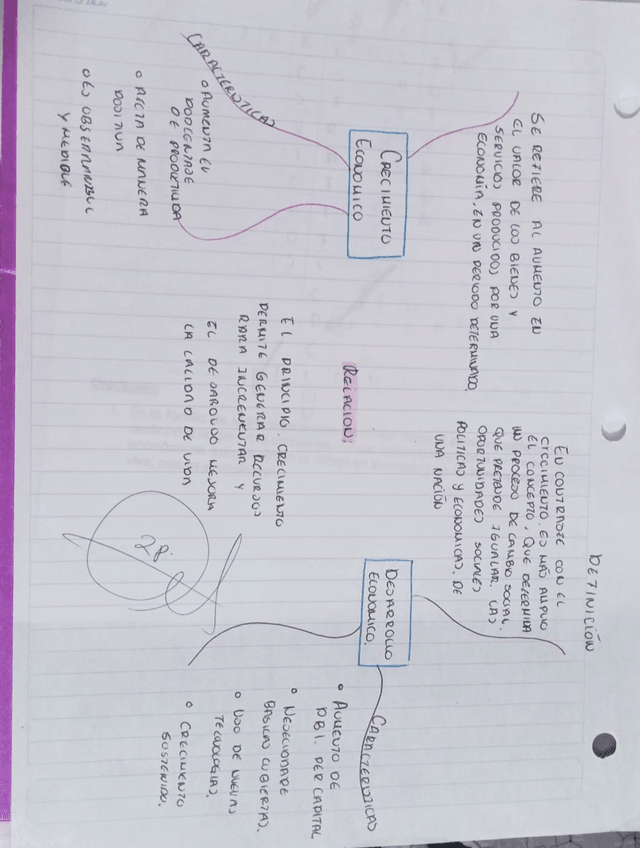 DEFINICIÓN
SE REFIERE AL AUMENTO EN
EL VALOR DE LOS BIENES Y
SERVICIOS PRODUCIDOS POR UNA
ECONOMÍA, EN UN PERIODO DETERMINADO,
CRECIMIENTO
ECONOMICO
CARACTERISTICAS
• AUMENTA EL
PORCENTAJE
DE PRODUCTIVIDA
• AFECTA DE MANERA
POSITIVA
• ES OBSERVABLE
Y MEDIBLE
RELACION:
EL PRINCIPIO, CRECIMIENTO
PERMITE GENERAR RECURSOS
PARA INCREMENTAR Y
EL DESAROLLO MEJORA
LA CALIDAD DE VIDA
EN CONTRASTE CON EL
CRECIMIENTO. ES MÁS AMPLIO
EL CONCEPTO, QUE DETERMINA
UN PROCESO DE CAMBIO SOCIAL.
QUE PRETENDE IGUALAR. LAS
OPORTUNIDADES SOCIALES
POLITICAS Y ECONOMICAS. DE
UNA NACIÓN
DESARROLLO
ECONOMICO.
CARACTERISTICAS
• AUMENTO DE
PBI. PER CAPITAL
• NESECIDADE
BASICAS CUBIERTAS.
• USO DE NUEVAS
TECNOLOGIAS.
• CRECIMIENTO
SOSTENIDO.
28.